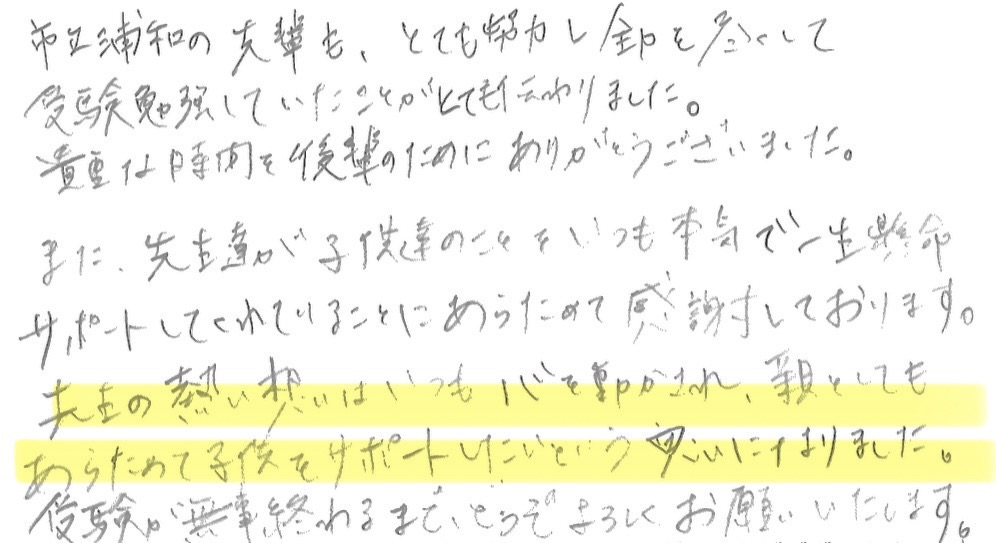 市立浦和の先輩も、とても努力し全力を尽くして
受験勉強していたことがとても伝わりました。
貴重な時間を後輩のためにありがとうございました。
また、先生達が子供達のことをいつも本気で一生懸命
サポートしてくれていることにあらためて感謝しております。
先生の熱い想いはいつも心を動かされ、親としても
あらためて子供をサポートしたいという思いになりました。
受験が無事終わるまで、どうぞよろしくお願いいたします。